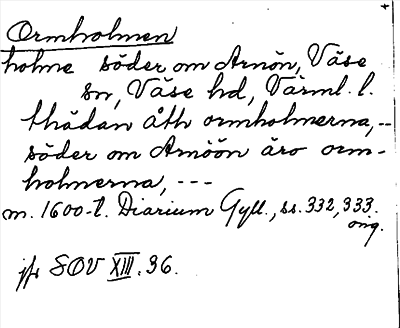 Ormholmen
holme söder om Arnön, Väse
sn, Väse hd, Värml. l.
thädan åth ormholmerna,--
söder om Arnöön äro orm-
holmerna, ---
m. 1600-t. Diarium Gyll., ss. 332, 333.
ong.
jfr SOV XIII. 36.